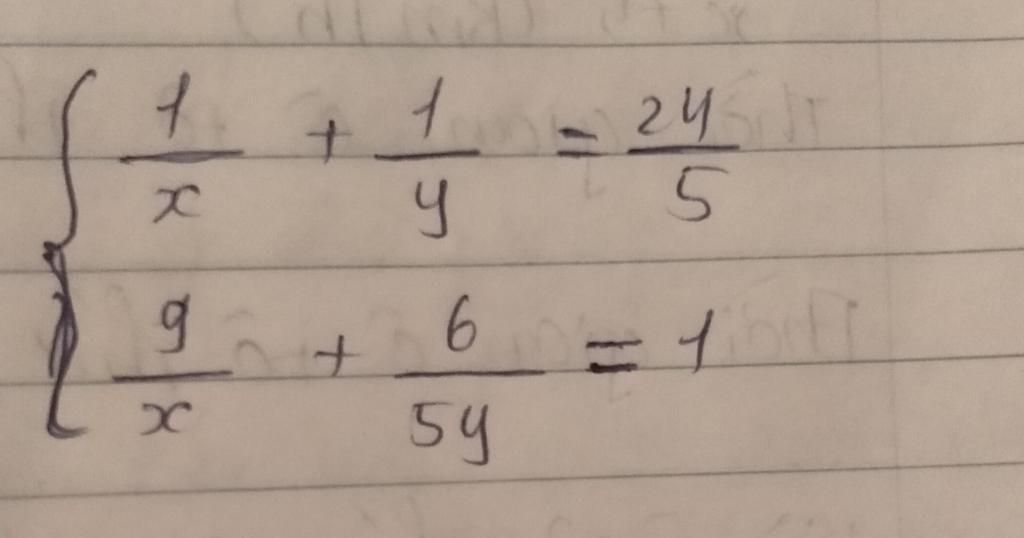 \begin{cases} \frac{1}{x} + \frac{1}{y} = \frac{24}{5} \\ \frac{9}{x} + \frac{6}{5y} = 1 \end{cases}